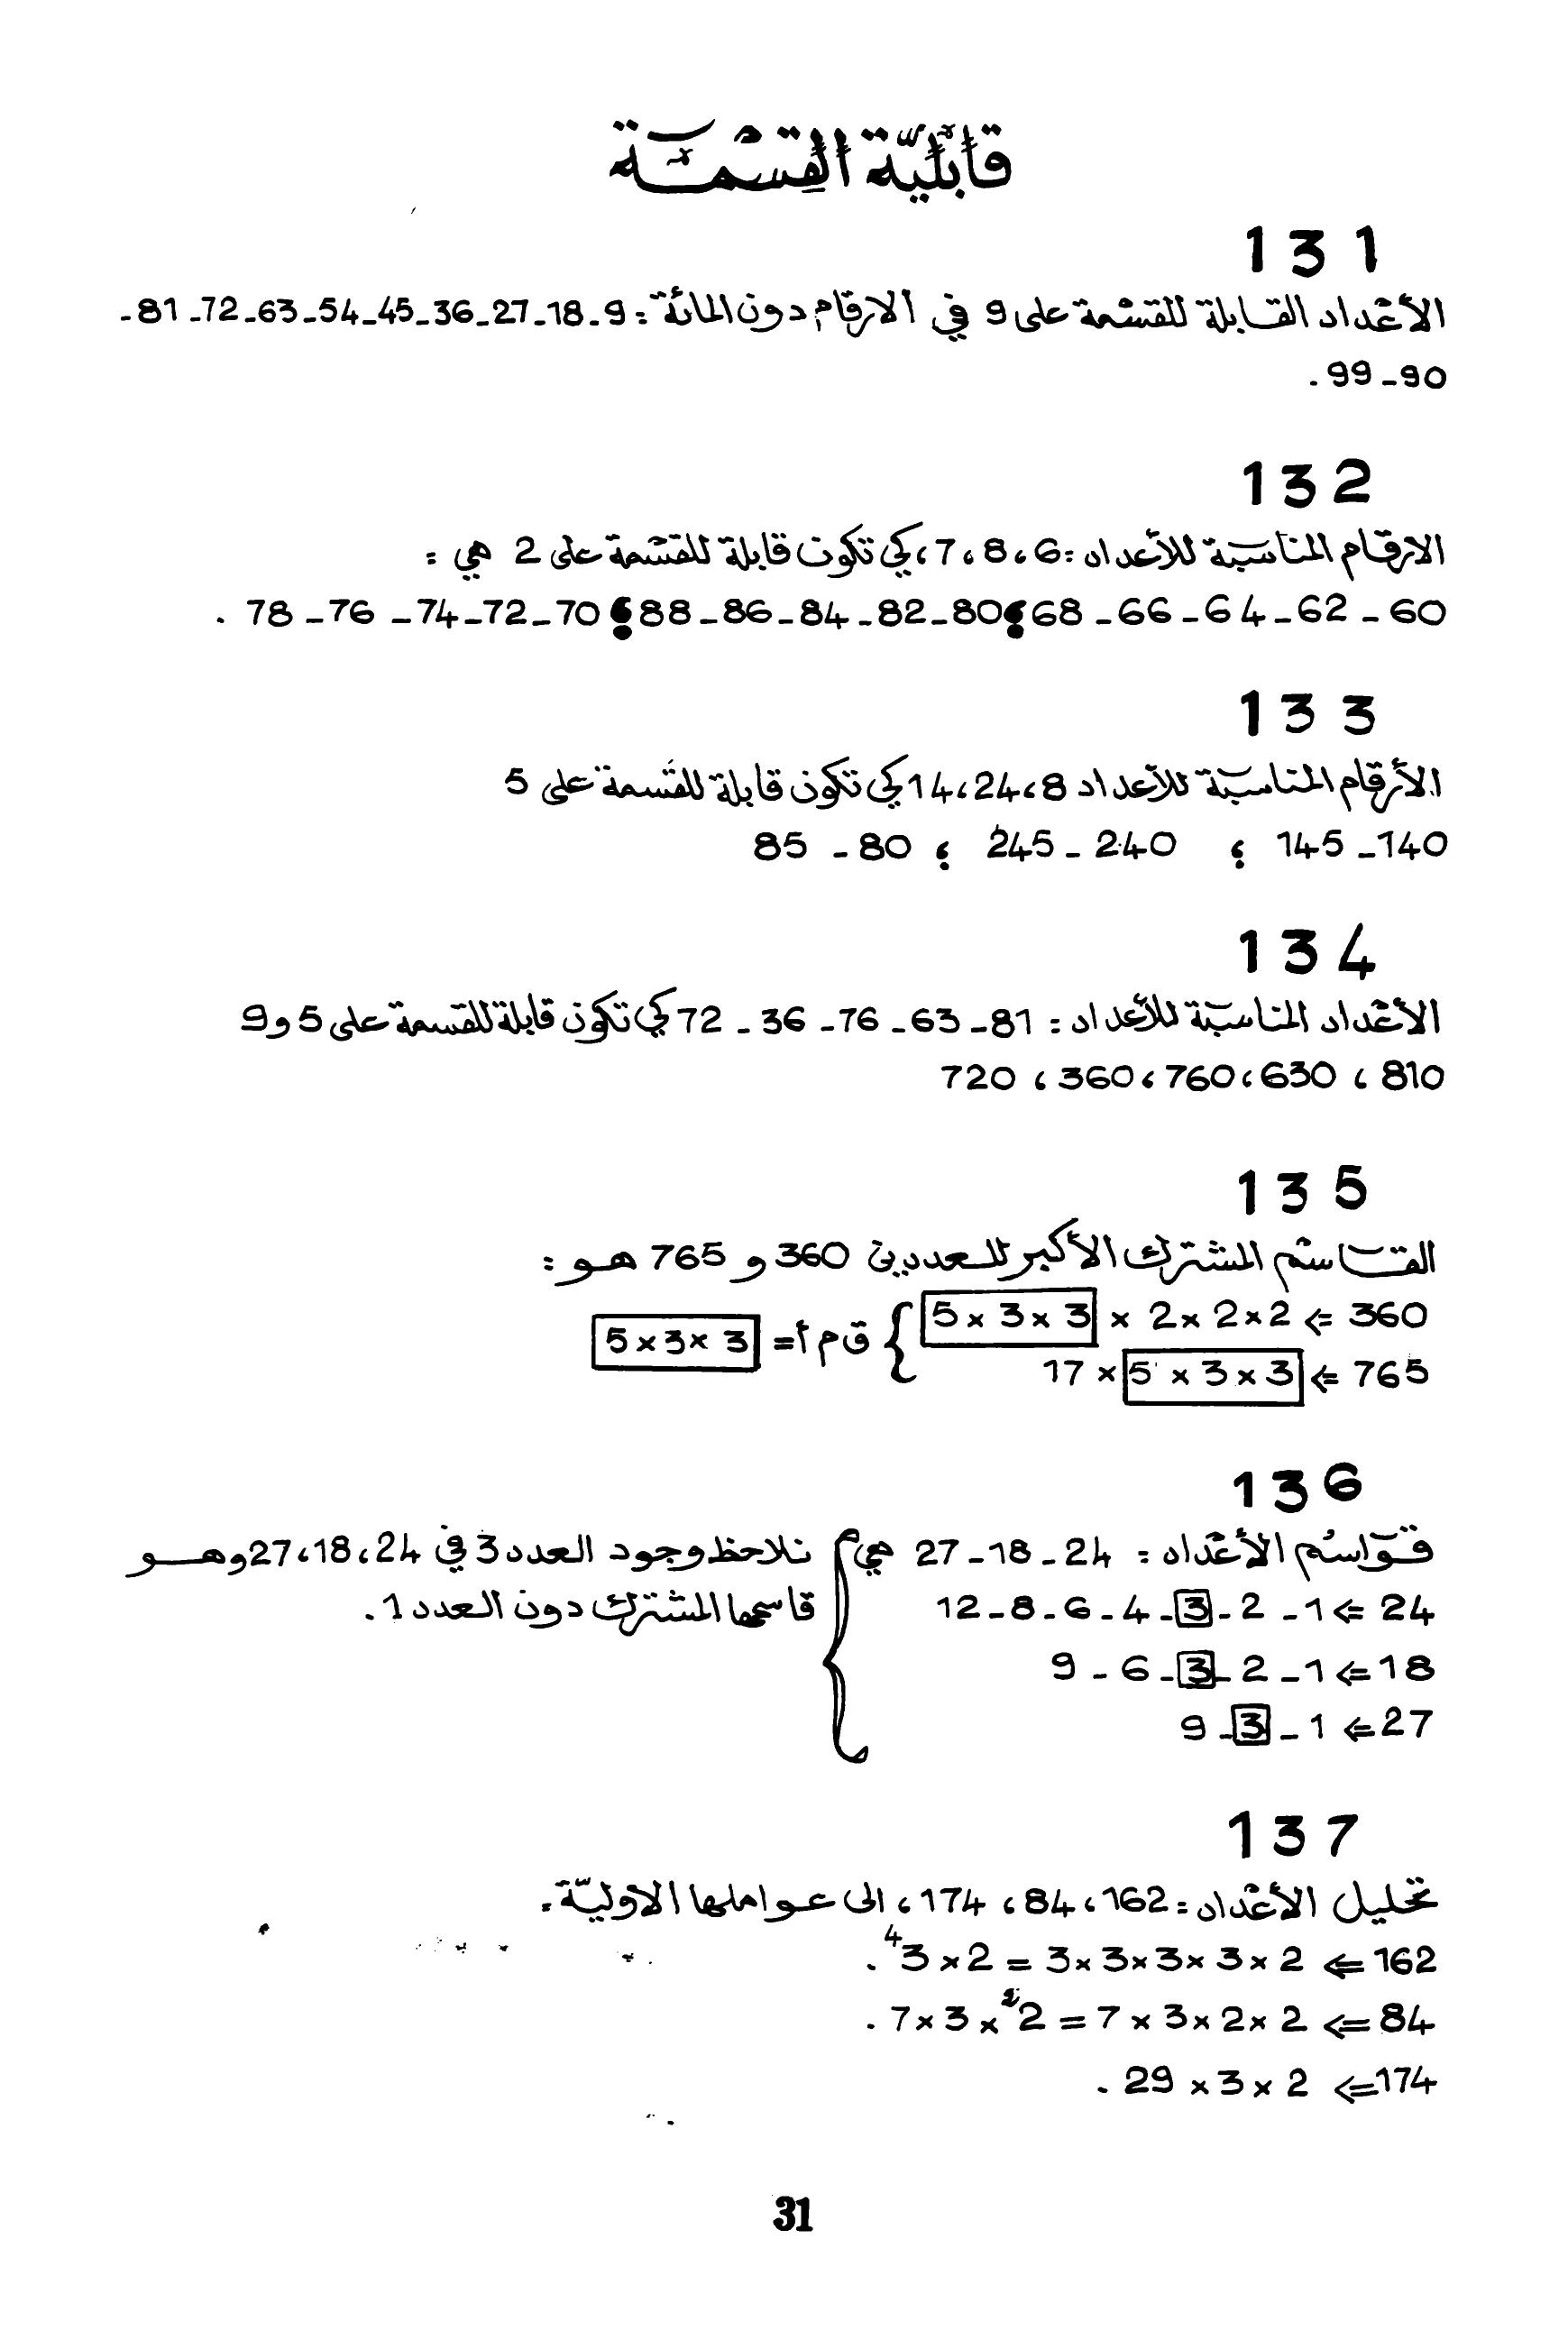 قابليّة القسمة
131
الأعداد القابلة للقسمة على 9 في الارقام دون المائة : 9 - 18 - 27 - 36 - 45 - 54 - 63 - 72 - 81 -
90 - 99 .
132
الارقام المناسبة للأعداد : 6 ، 8 ، 7 ، كي تكون قابلة للقسمة على 2 هي :
60 - 62 - 64 - 66 - 68 ؛ 80 - 82 - 84 - 86 - 88 ؛ 70 - 72 - 74 - 76 - 78 .
133
الأرقام المناسبة للأعداد 8 ، 24 ، 14 كي تكون قابلة للقسمة على 5
140 - 145 ؛ 240 - 245 ؛ 80 - 85
134
الأعداد المناسبة للأعداد : 81 - 63 - 76 - 36 - 72 كي تكون قابلة للقسمة على 5 و 9
810 ، 630 ، 760 ، 360 ، 720
135
القاسم المشترك الأكبر للعددين 360 و 765 هو :
360 ⇐ 2 × 2 × 2 × 3 × 3 × 5 } ق م أ = 3 × 3 × 5
765 ⇐ 3 × 3 × 5 × 17
136
قواسم الأعداد : 24 - 18 - 27 هي } نلاحظ وجود العدد 3 في 24 ، 18 ، 27 وهو
24 ⇐ 1 - 2 - 3 - 4 - 6 - 8 - 12 قاسمها المشترك دون العدد 1 .
18 ⇐ 1 - 2 - 3 - 6 - 9
27 ⇐ 1 - 3 - 9
137
تحليل الأعداد : 162 ، 84 ، 174 ، الى عواملها الاوليّة .
162 ⇐ 2 × 3 × 3 × 3 × 3 = 2 × 3⁴ .
84 ⇐ 2 × 2 × 3 × 7 = 2² × 3 × 7 .
174 ⇐ 2 × 3 × 29 .
31